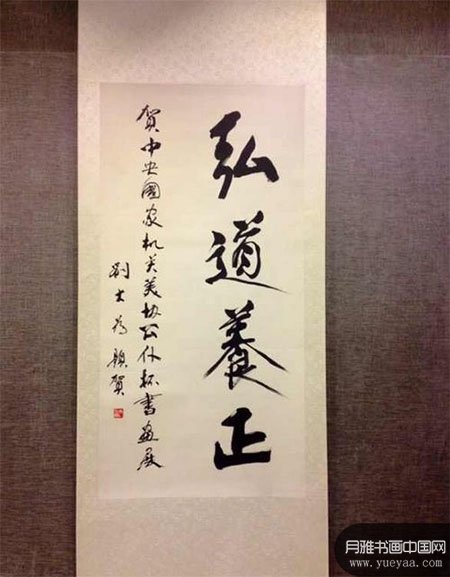 弘道養正
贺中央國家机关美协公仆杯書画展
劉大为題贺
月雅书画中国网
www.yueyaa.com